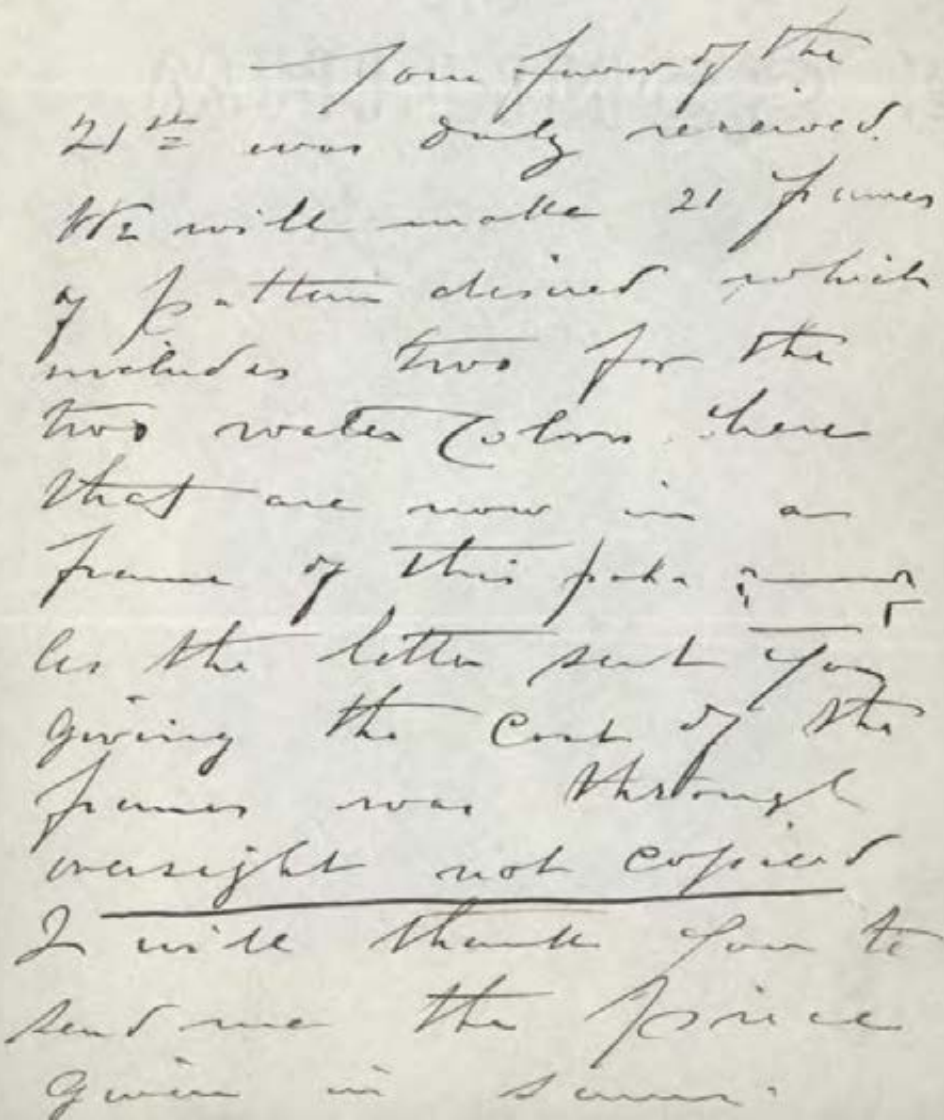 Your favor of the
21st was duly received.
We will make 21 frames
of pattern desired which
includes two for the
two water Colors here
that are now in a
frame of this
As the letter sent you
giving the cost of the
frames was through
oversight not copied
I will thank you to
send me the price
given in same.